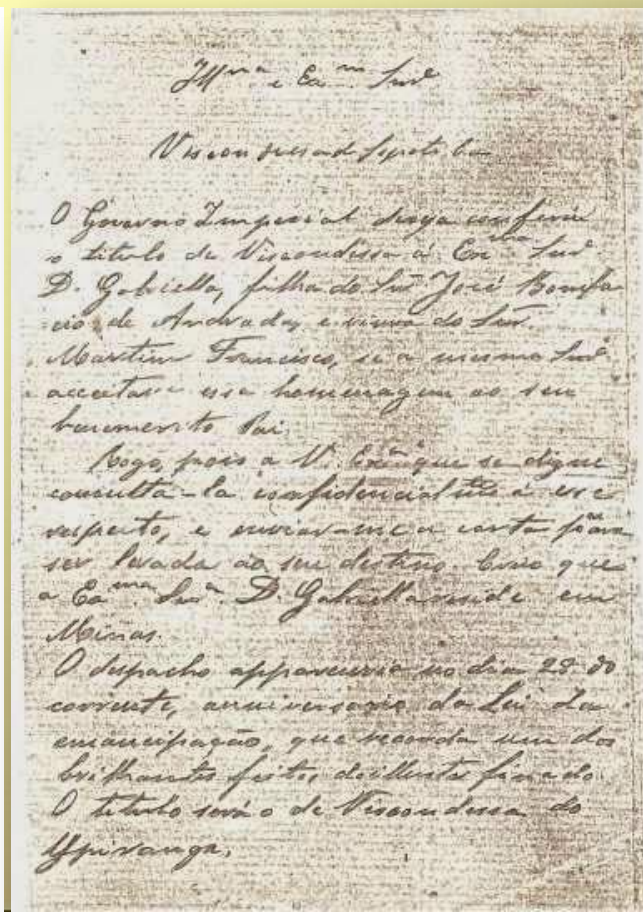 Illma e Exma Snra
Viscondessa de Sepetiba
O Governo Imperial deseja conferir
o titulo de Viscondessa á Exma Snra
D. Gabriella, filha do Snr José Bonifa
cio de Andrada, e viuva do Snr
Martim Francisco, se a mesma Snra
acceitar essa homenagem ao seu
benemerito Pai.
Rogo, pois a V. Exa que se digne
consulta-la confidencialmte a esse
respeito, e enviar-me a carta para
ser levada ao seu destino. Creio que
a Exma Snra D. Gabriella reside em
Minas.
O despacho apparecerá no dia 28 do
corrente, anniversario da Lei da
emancipação, que recorda um dos
brilhantes feitos do illustre finado.
O titulo será o de Viscondessa do
Ypiranga.